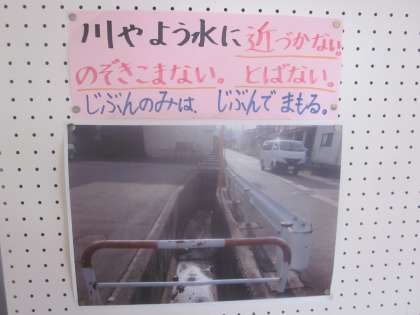 川やよう水に近づかない。
のぞきこまない。とばない。
じぶんのみは、じぶんでまもる。